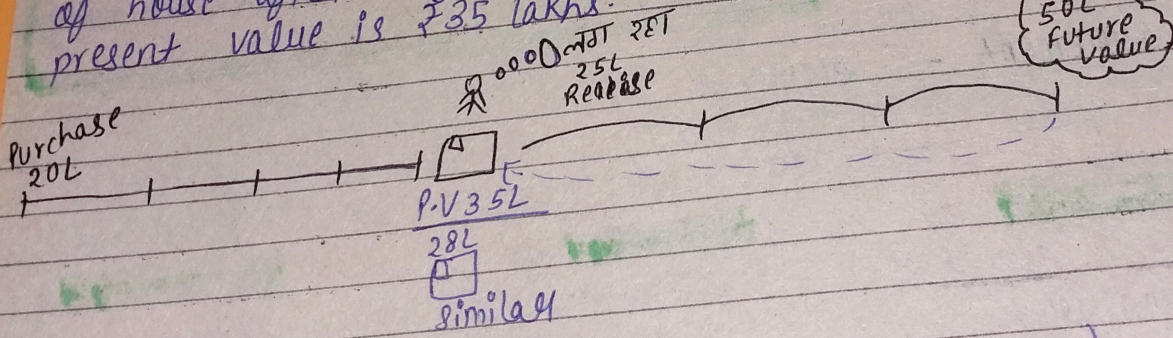 of house
present value is ₹35 lakhs.
लग रहा
25L
Realise
50L
Future
value
Purchase
20L
P.V 35L
28L
Similar